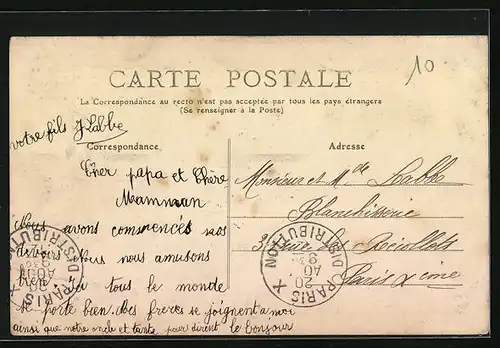 10
CARTE POSTALE
La Correspondance au recto n'est pas acceptée par tous les pays étrangers
(Se renseigner à la Poste)
votre fils J Labbe
Correspondance
Adresse
Cher papa et Chère
Mamman
Nous avons commencés nos
devoirs Nous nous amusons
bien. Ici tous le monde
se porte bien. Mes freres se joignent a moi
ainsi que notre oncle et tante pour dirent le bonjour
Monsieur et Mde Labbe
Blanchisserie
3 Rue des Récollets
Paris X eme
PARIS
DISTRIBUTION
20
AOUT
PARIS
DISTRIBUTION
20
AOUT